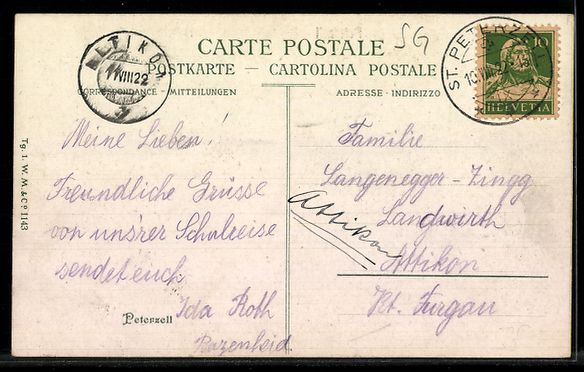 SG
ALTIKON
11 VIII 22
CARTE POSTALE
POSTKARTE - CARTOLINA POSTALE
CORRESPONDANCE - MITTEILUNGEN
ADRESSE - INDIRIZZO
ST. PETERZELL
10
HELVETIA
Tg. I. W. M. & Cº 1143
Meine Lieben!
Freundliche Grüsse
von uns'rer Schulreise
sendet euch
Ida Roth
Bazenheid.
Peterzell
Familie
Langenegger-Zingg
Landwirth
Attikon
Kt. Turgau
Attikon